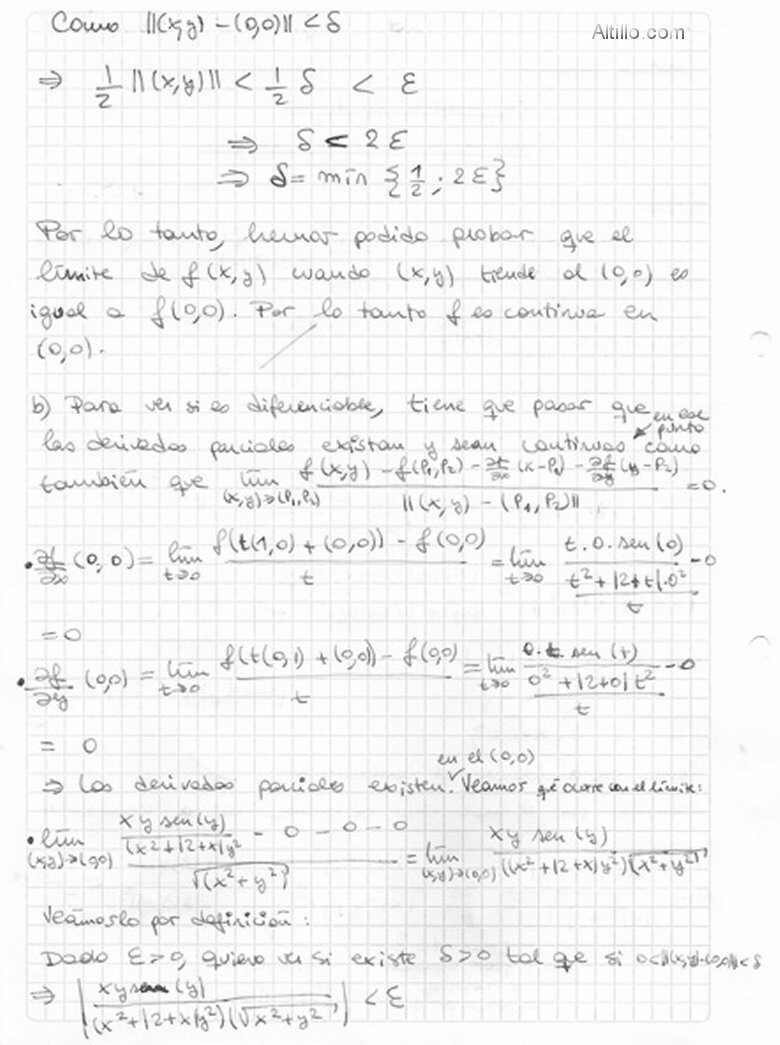 Altillo.com
Como ||(x,y) - (0,0)|| < δ
⇒ 1/2 ||(x,y)|| < 1/2 δ < ε
⇒ δ < 2ε
⇒ δ = mín {1/2 ; 2ε}
Por lo tanto, hemos podido probar que el
límite de f(x,y) cuando (x,y) tiende al (0,0) es
igual a f(0,0). Por lo tanto f es continua en
(0,0).
b) Para ver si es diferenciable, tiene que pasar que
las derivadas parciales existan y sean continuas en ese punto como
también que lím (x,y)→(P1,P2) (f(x,y) - f(P1,P2) - ∂f/∂x (x-P1) - ∂f/∂y (y-P2)) / ||(x,y) - (P1,P2)|| = 0.
• ∂f/∂x (0,0) = lím t→0 (f(t(1,0) + (0,0)) - f(0,0)) / t = lím t→0 ((t.0.sen(0)) / (t²+|2+t|.0²) - 0) / t
= 0
• ∂f/∂y (0,0) = lím t→0 (f(t(0,1) + (0,0)) - f(0,0)) / t = lím t→0 ((0.t.sen(t)) / (0²+|2+0|t²) - 0) / t
= 0
⇒ Las derivadas parciales existen en el (0,0). Veamos qué ocurre con el límite:
• lím (x,y)→(0,0) ((xy sen(y)) / (x²+|2+x|y²) - 0 - 0 - 0) / √(x²+y²) = lím (x,y)→(0,0) (xy sen(y)) / ((x²+|2+x|y²)√(x²+y²))
Veámoslo por definición:
Dado ε>0, quiero ver si existe δ>0 tal que si 0<||(x,y)-(0,0)||<δ
⇒ |(xy sen(y)) / ((x²+|2+x|y²)(√x²+y²))| < ε